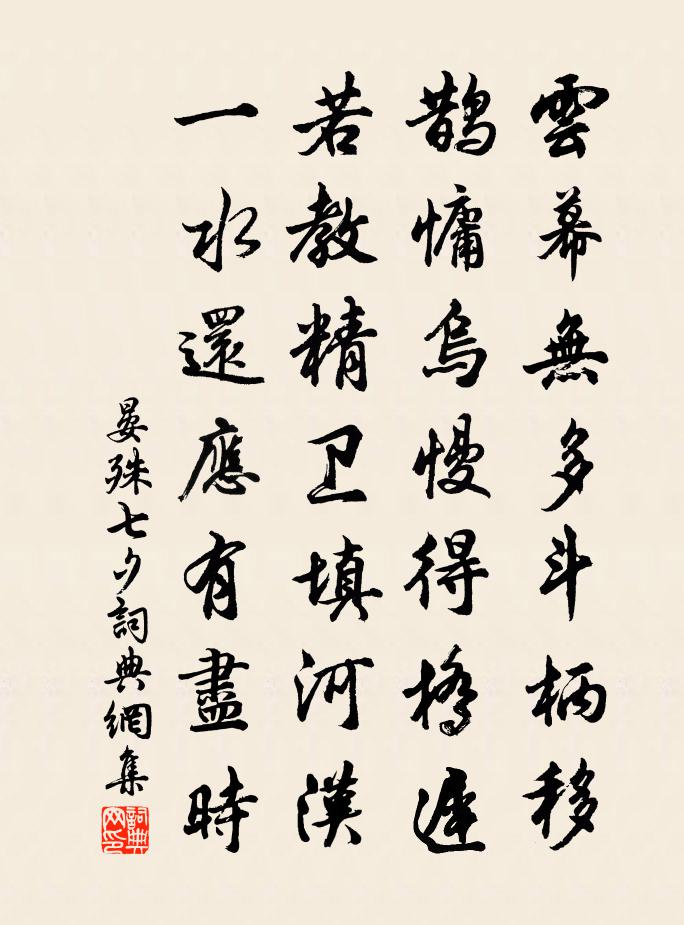 雲幕無多斗柄移
鵲慵烏慢得橋遲
若教精卫填河漢
一水還應有盡時
晏殊七夕詞典網集
詞典网印